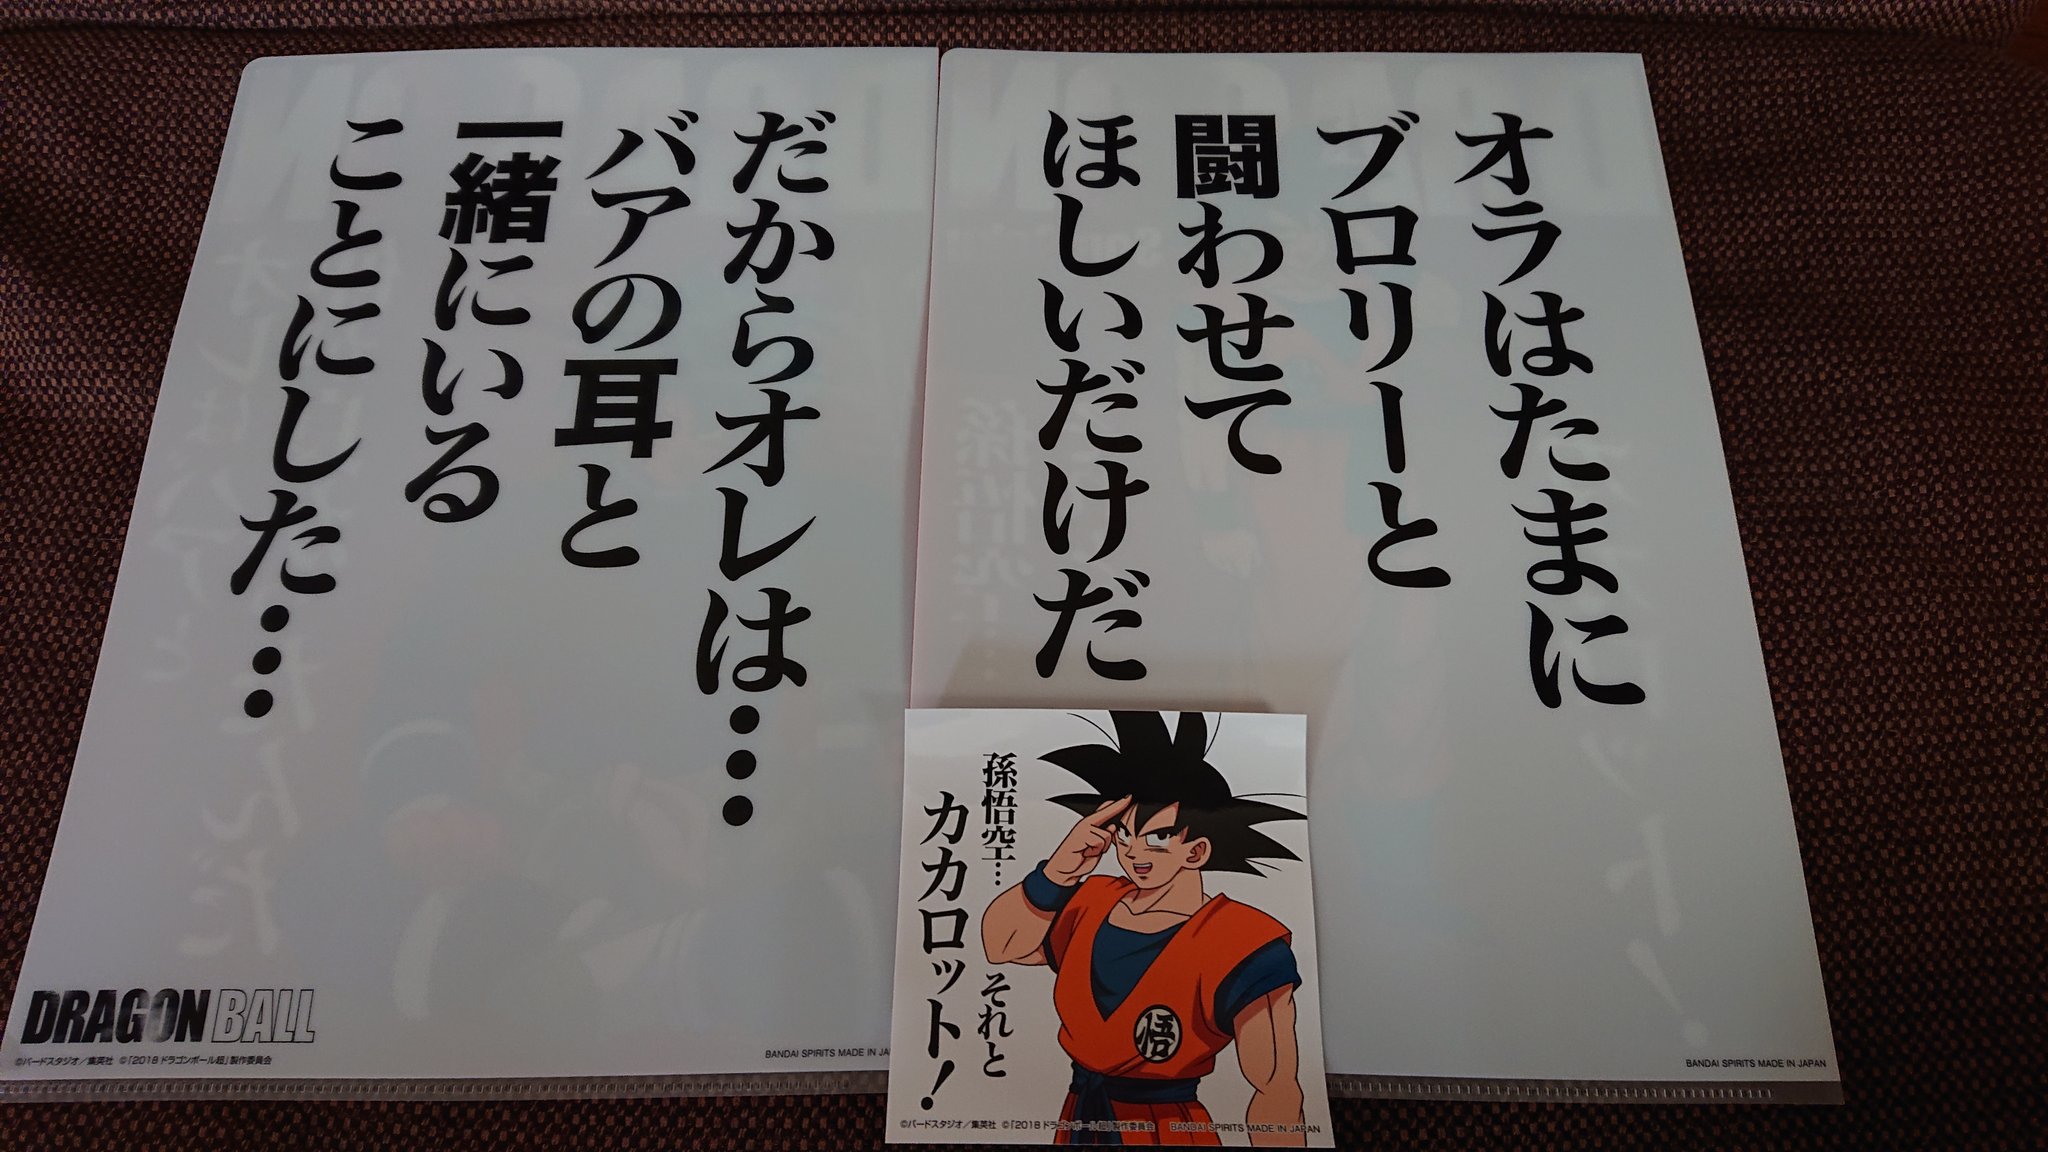 オラはたまに
ブロリーと
闘わせて
ほしいだけだ
BANDAI SPIRITS MADE IN JAPAN
だからオレは…
バアの耳と
一緒にいる
ことにした…
DRAGON BALL
©バードスタジオ／集英社 ©「2018 ドラゴンボール超」製作委員会
BANDAI SPIRITS MADE IN JA
孫悟空… それと
カカロット！
悟
©バードスタジオ／集英社 ©「2018 ドラゴンボール超」製作委員会
BANDAI SPIRITS MADE IN JAPAN